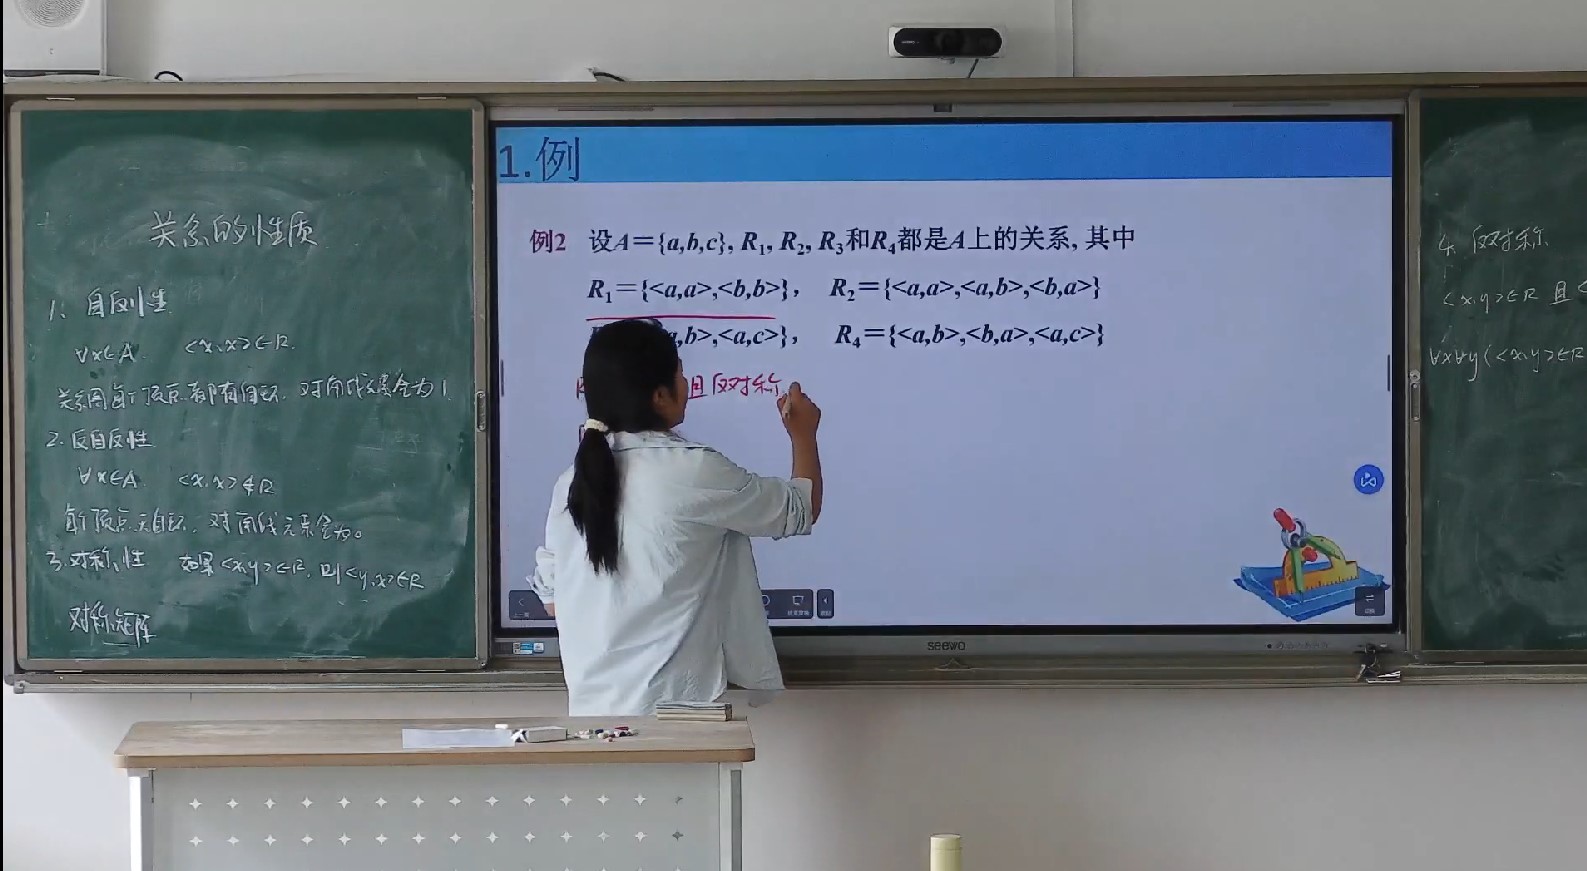 关系的性质
1、自反性
∀x∈A <x,x>∈R.
关系图每个顶点都有自环,对角线元素全为1.
2.反自反性
∀x∈A <x,x>∉R
每个顶点无自环,对角线元素全为0
3.对称性 如果<x,y>∈R,则<y,x>∈R
对称矩阵
1.例
例2 设A={a,b,c}, R₁, R₂, R₃和R₄都是A上的关系, 其中
R₁={<a,a>,<b,b>}, R₂={<a,a>,<a,b>,<b,a>}
b>,<a,c>}, R₄={<a,b>,<b,a>,<a,c>}
且反对称
seewo
4.反对称
<x,y>∈R 且<
∀x∀y(<x,y>∈R